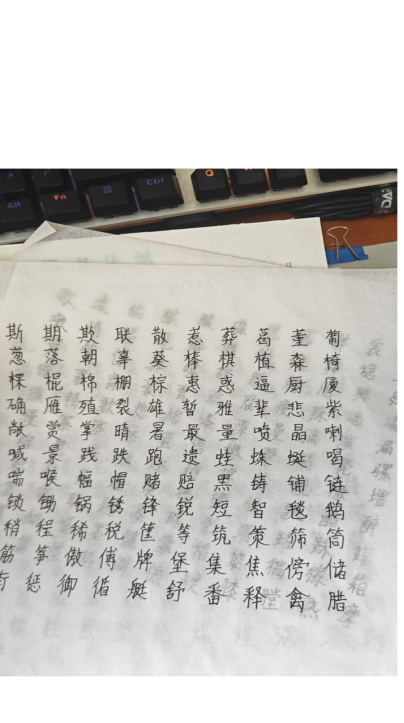 Alt Fn Ctrl
Q
斯期欺联散惹葬葛董葡
葱落朝辜葵棒棋植森椅
棵棍棉棚棕惠惑逼厨厦
确雁殖裂雄暂雅辈悲紫
敞赏掌晴暑最量喷晶喇
喊景践跌跑遗蛙蛛蜓喝
喘喉幅帽赌赔黑铸铺链
锁锄锅锈锋锐短智毯鹅
稍程稀税筐等筑策筛筒
筋筝傲傅牌堡集焦傍储
惩御循艇舒番释禽腊